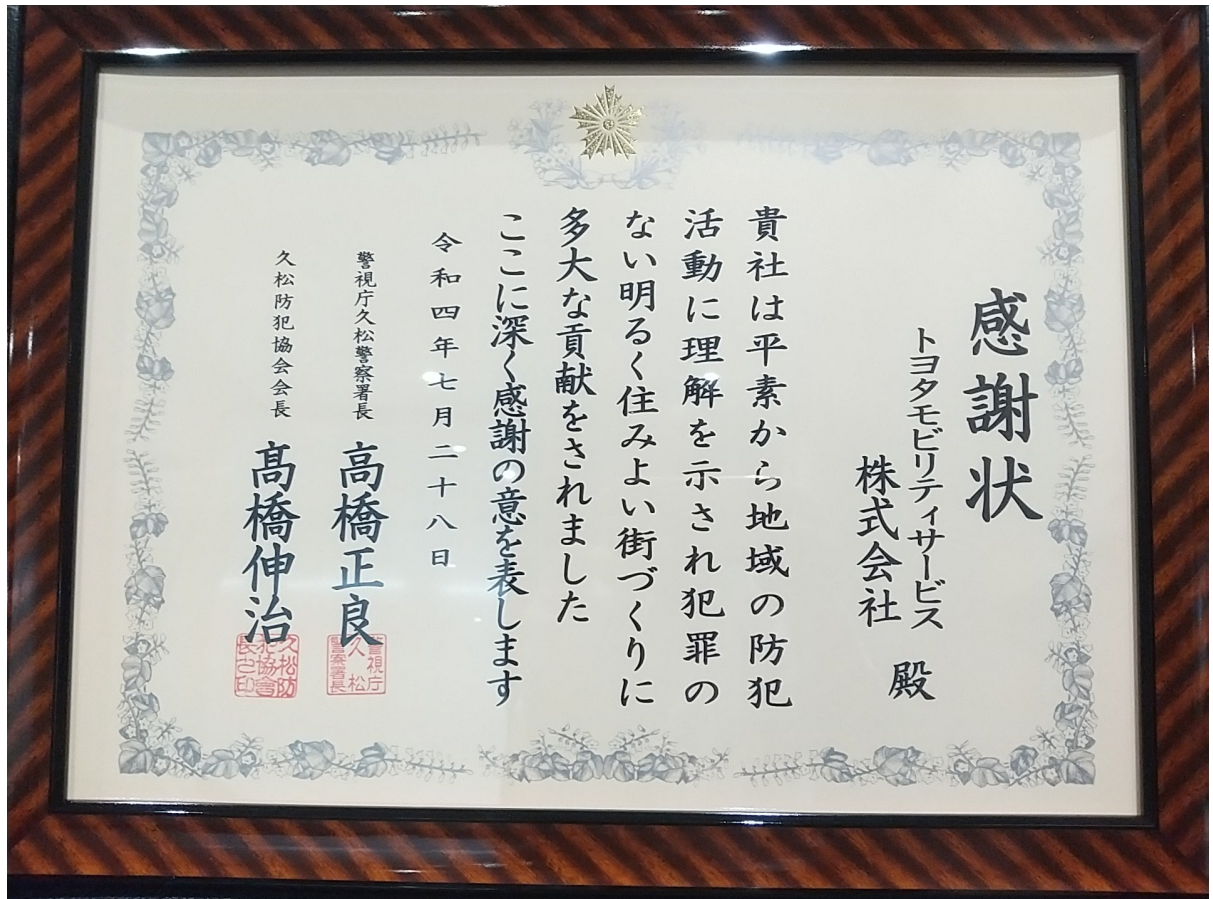 感謝状
トヨタモビリティサービス
株式会社 殿
貴社は平素から地域の防犯
活動に理解を示され犯罪の
ない明るく住みよい街づくりに
多大な貢献をされました
ここに深く感謝の意を表します
令和四年七月二十八日
警視庁久松警察署長 高橋正良
警視庁
久松
警察署長
久松防犯協会会長 髙橋伸治
久松防
犯協會
長之印